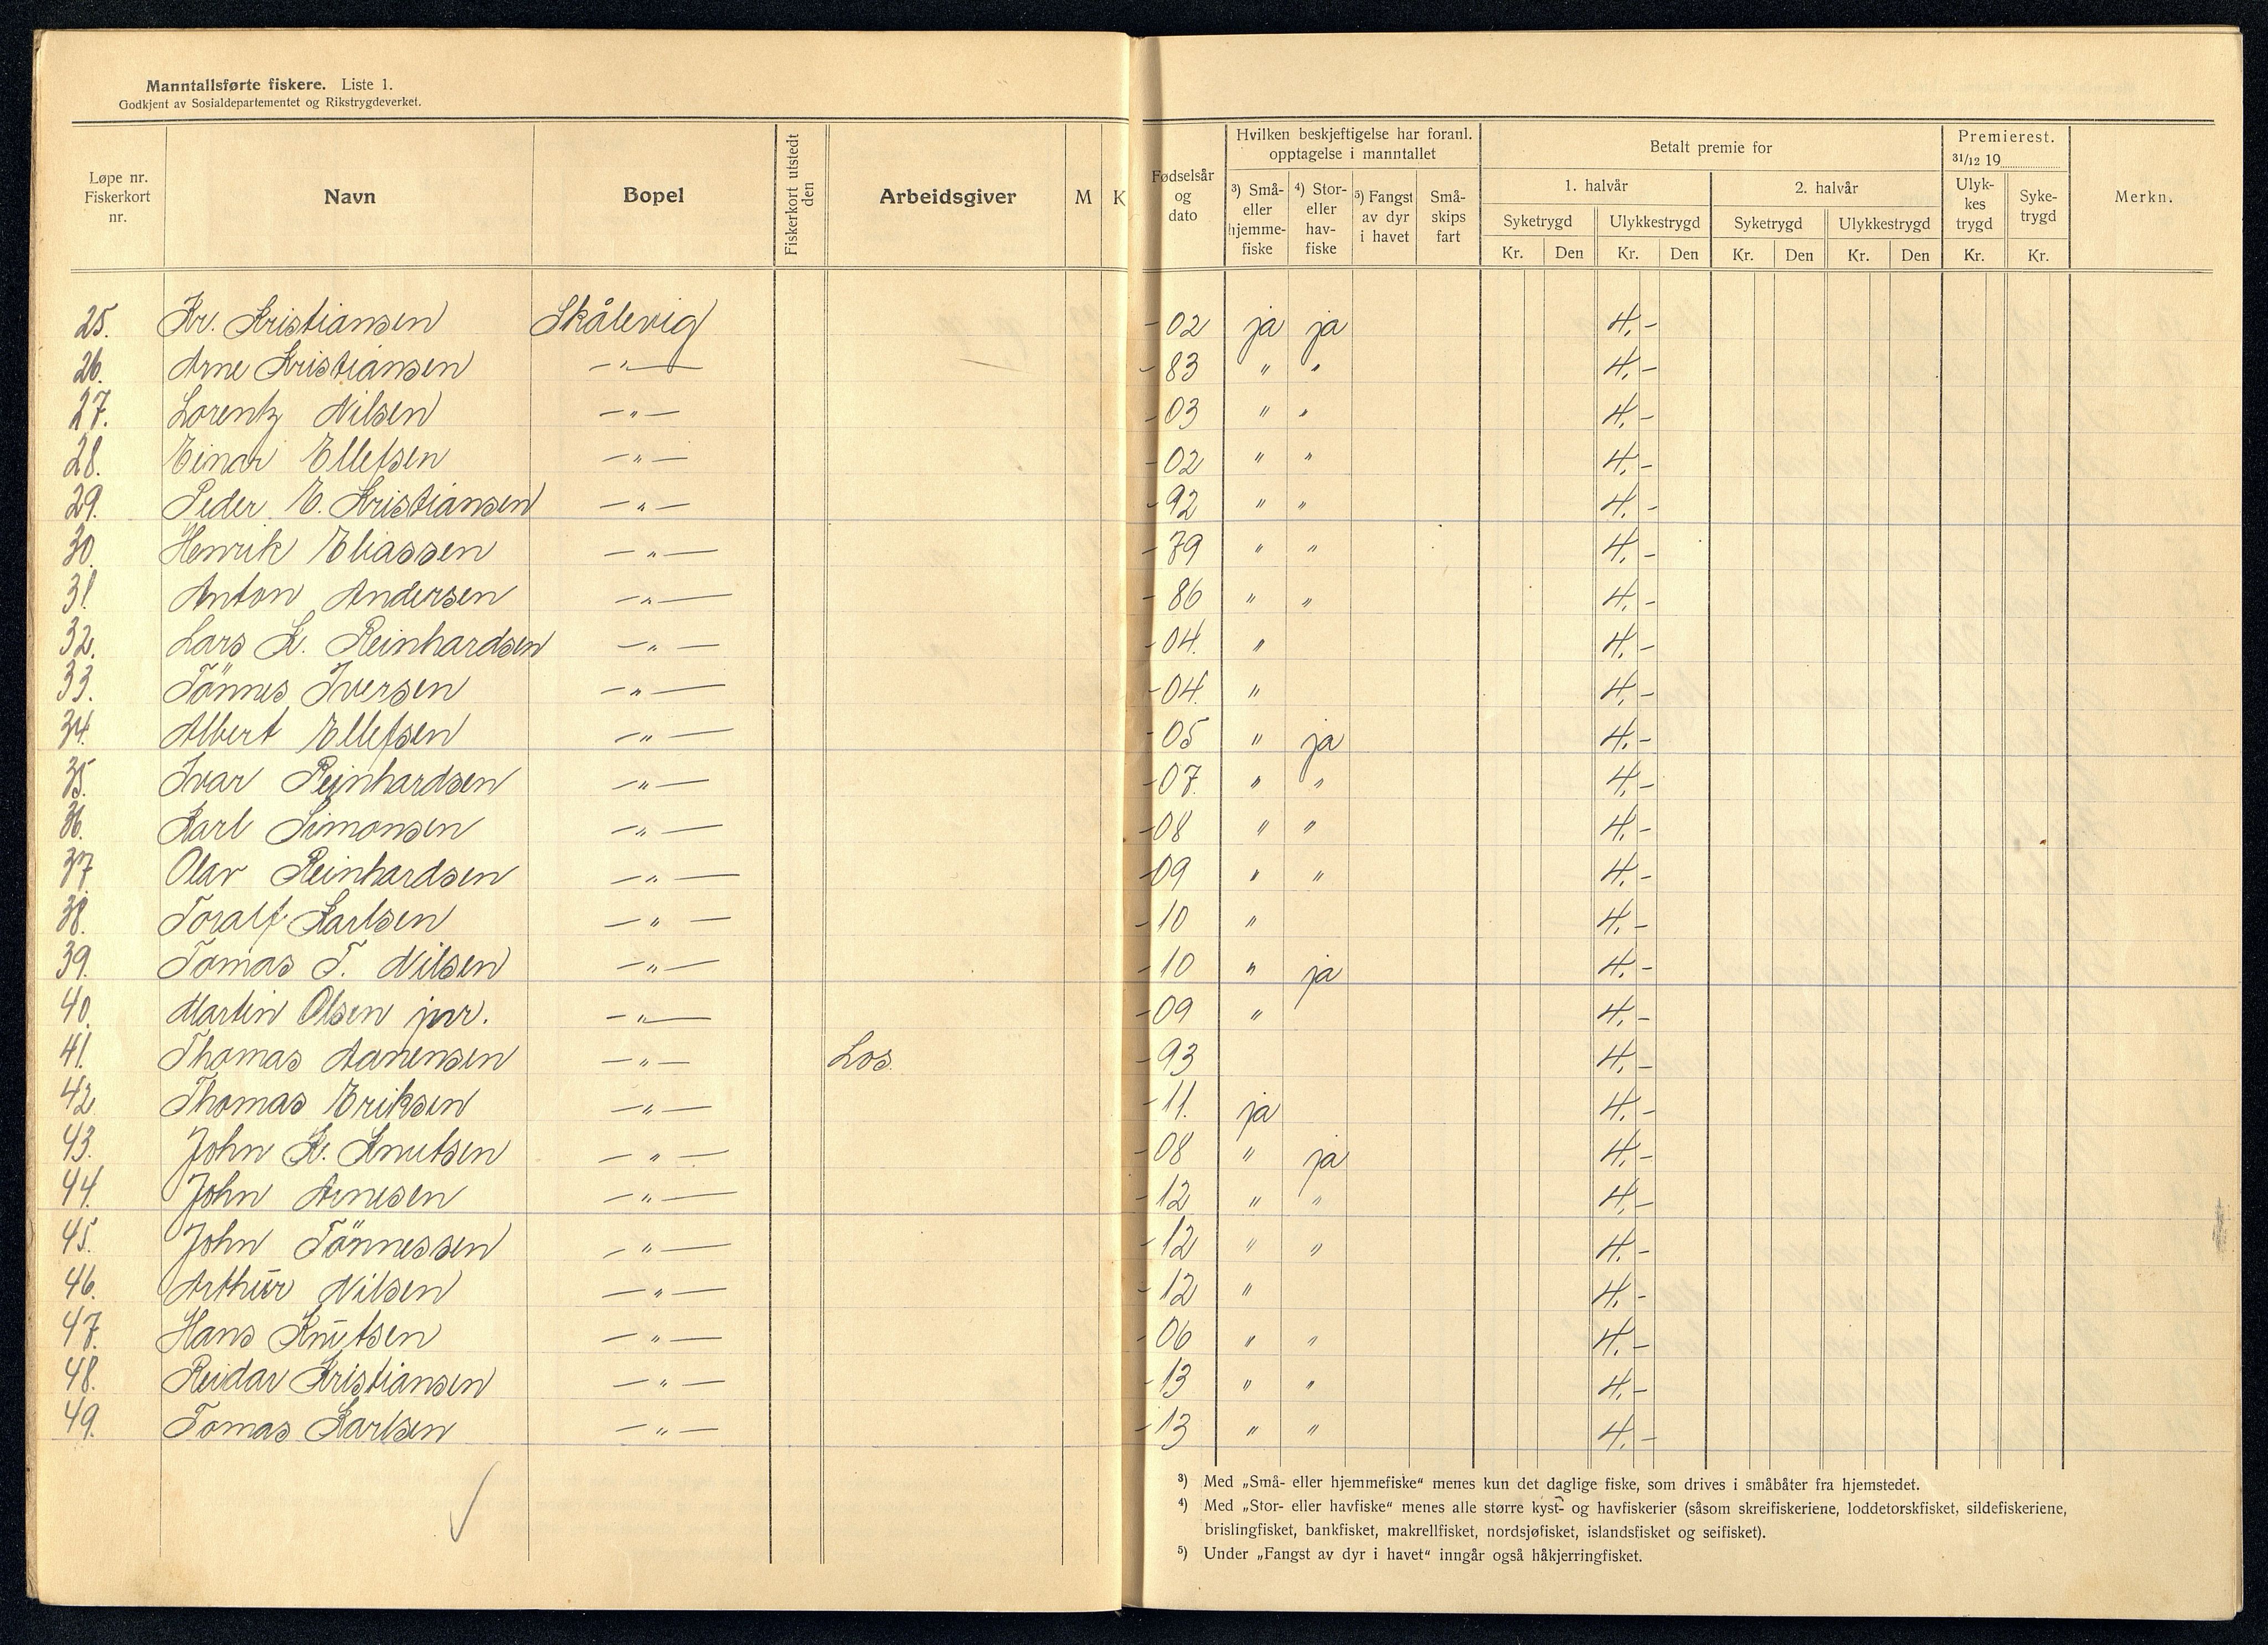 Manntallsførte fiskere. Liste 1.
Godkjent av Sosialdepartementet og Rikstrygdeverket.
Løpe nr. Fiskerkort nr. | Navn | Bopel | Fiskerkort utstedt den | Arbeidsgiver | M | K | Fødselsår og dato | Hvilken beskjeftigelse har foranl. opptagelse i manntallet | Betalt premie for | Premierest. 31/12 19 | Merkn.
3) Små- eller hjemme-fiske | 4) Stor- eller hav-fiske | 5) Fangst av dyr i havet | Små-skips fart | 1. halvår | 2. halvår | Ulyk-kes trygd | Syke-trygd
Syketrygd | Ulykkestrygd | Syketrygd | Ulykkestrygd
Kr. | Den | Kr. | Den | Kr. | Den | Kr. | Den | Kr. | Kr.
25. Kr. Kristiansen Skålevig -02 ja ja 4,-
26. Arne Kristiansen —"— -83 " " 4,-
27. Lorentz Nilsen —"— -03 " " 4,-
28. Einar Ellefsen —"— -02 " " 4,-
29. Peder E. Kristiansen —"— -92 " " 4,-
30. Henrik Eliassen —"— -79 " " 4,-
31. Anton Andersen —"— -86 " " 4,-
32. Lars K. Reinhardsen —"— -04. " 4,-
33. Tönnes Iversen —"— -04. " 4,-
34. Albert Ellefsen —"— -05 " ja 4,-
35. Ivar Reinhardsen —"— -07. " " 4,-
36. Karl Simonsen —"— -08 " " 4,-
37. Olav Reinhardsen —"— -09 " " 4,-
38. Toralf Karlsen —"— -10 " 4,-
39. Tomas T. Nilsen —"— -10 " ja 4,-
40. Martin Olsen jnr. —"— -09 " 4,-
41. Thomas Aanensen —"— Los. -93 4,-
42 Thomas Eriksen —"— -11. ja 4,-
43. John K. Knutsen —"— -08 " ja 4,-
44. John Arnesen —"— -12 " " 4,-
45. John Tönnessen —"— -12 " " 4,-
46. Arthur Nilsen —"— -12 " 4,-
47. Hans Knutsen —"— -06 " " 4,-
48. Reidar Kristiansen —"— -13 " " 4,-
49. Tomas Karlsen —"— -13 " " 4,-
3) Med „Små- eller hjemmefiske“ menes kun det daglige fiske, som drives i småbåter fra hjemstedet.
4) Med „Stor- eller havfiske“ menes alle større kyst- og havfiskerier (såsom skreifiskeriene, loddetorskfisket, sildefiskeriene,
brislingfisket, bankfisket, makrellfisket, nordsjøfisket, islandsfisket og seifisket).
5) Under „Fangst av dyr i havet“ inngår også håkjerringfisket.